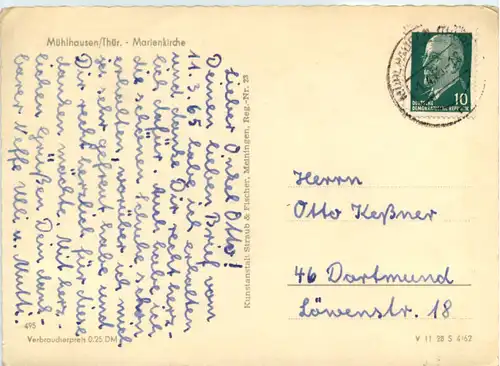 Mühlhausen/Thür. - Marienkirche
Lieber Onkel Otto!
Deinen lieben Brief vom
11.3.65 habe ich erhalten
und danke Dir recht herz-
lich dafür.
die schönen Schuhe schon
erhalten, worüber ich mich
sehr gefreut habe und
Dir recht herzlich für diese
danken möchte. Mit herz-
lichen Grüßen Dein dank-
barer Neffe Ulli u. Mutti.
Kunstanstalt Straub & Fischer, Meiningen, Reg.-Nr. 23
DEUTSCHE
DEMOKRATISCHE REPUBLIK
10
Herrn
Otto Keßner
46 Dortmund
Löwenstr. 18
495
Verbraucherpreis 0.25 DM
V 11 28 S 4/62